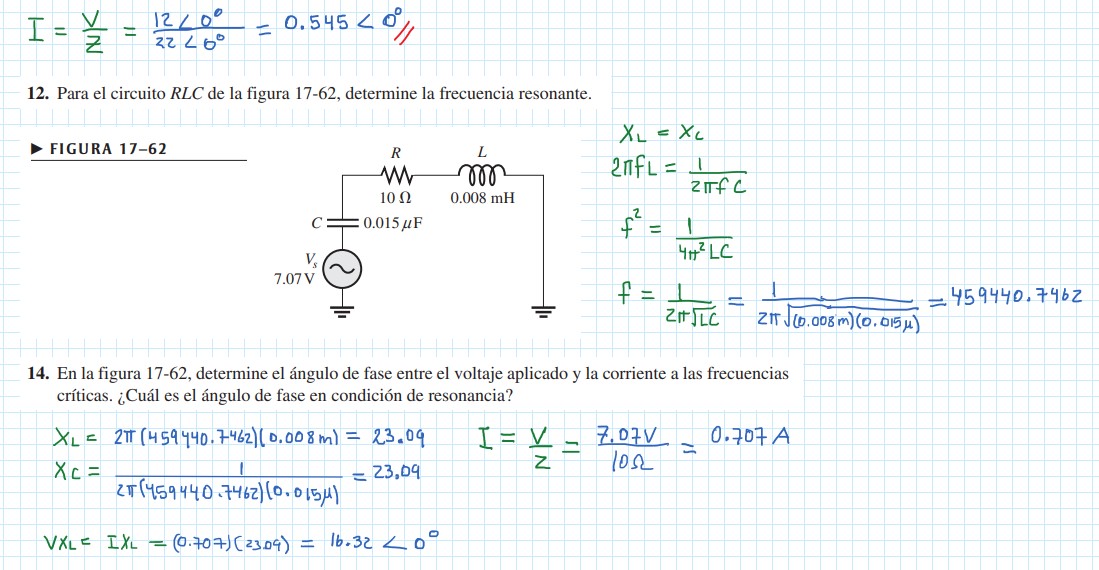 I = V/Z = 12∠0°/22∠0° = 0.545∠0°//
12. Para el circuito RLC de la figura 17-62, determine la frecuencia resonante.
▶ FIGURA 17–62
R
L
10 Ω
0.008 mH
C
0.015 μF
Vs
7.07 V
XL = XC
2πfL = 1/2πfC
f² = 1/4π²LC
f = 1/2π√LC = 1/2π√(0.008m)(0.015μ) = 459440.7462
14. En la figura 17-62, determine el ángulo de fase entre el voltaje aplicado y la corriente a las frecuencias
críticas. ¿Cuál es el ángulo de fase en condición de resonancia?
XL = 2π(459440.7462)(0.008m) = 23.09
XC = 1/2π(459440.7462)(0.015μ) = 23,09
I = V/Z = 7.07V/10Ω = 0.707 A
VXL = IXL = (0.707)(23.09) = 16.32∠0°